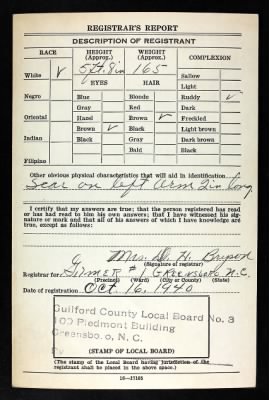 REGISTRAR'S REPORT
DESCRIPTION OF REGISTRANT
RACE HEIGHT (Approx.) WEIGHT (Approx.) COMPLEXION
White ✓ 5ft. 8in 165 Sallow
EYES HAIR Light
Negro Blue Blonde Ruddy ✓
Gray Red Dark
Oriental Hazel Brown ✓ Freckled
Brown ✓ Black Light brown
Indian Black Gray Dark brown
Bald Black
Filipino
Other obvious physical characteristics that will aid in identification
Scar on left arm 2in long
I certify that my answers are true; that the person registered has read
or has had read to him his own answers; that I have witnessed his sig-
nature or mark and that all of his answers of which I have knowledge are
true, except as follows:
Mrs. D. H. Bryson
(Signature of registrar)
Registrar for GILMER #1 GREENSBORO N.C.
(Precinct) (Ward) (City or County) (State)
Date of registration Oct. 16, 1940
Guilford County Local Board No. 3
Piedmont Building
Greensboro, N. C.
(STAMP OF LOCAL BOARD)
(The stamp of the Local Board having jurisdiction of the
registrant shall be placed in the above space.)